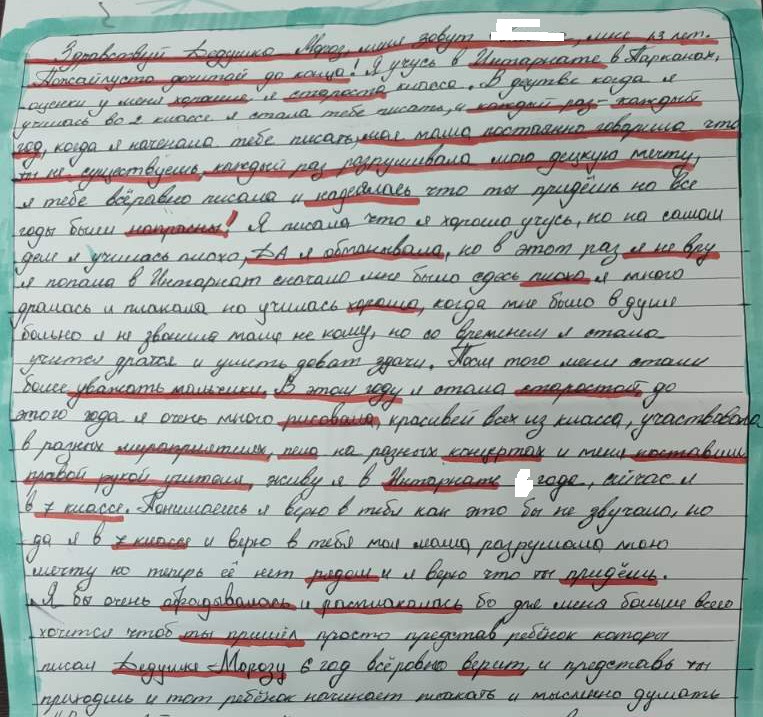 Здравствуй Дедушка Мороз, меня зовут , мне 13 лет.
Пожайлуста дочитай до конца! Я учусь в Интарнате в Парканах,
оценки у меня хорошие я староста класса. В децтве когда я
училась во 2 классе я стала тебе писать, и каждый раз- каждый
год, когда я наченала тебе писать, моя мама постоянно говорила что
ты не существуешь, каждый раз разрушивала мою децкую мечту,
я тебе всёравно писала и надеялась что ты придёшь но все
годы были напрасны! Я писала что я хорошо учусь, но на самом
деле я училась плохо, ДА я обманывала, но в этот раз я не вру
я попала в Интарнат сначало мне было сдесь плохо я много
дралась и плакала но училась хорошо, когда мне было в душе
больно я не звонила маме не кому, но со временем я стала
учится дратся и уметь доват здачи. После того меня стали
более уважать мальчики. В этом году я стала старостой, до
этого года я очень много рисовала, красивей всех из класса, участвовала
в разных мероприятиях, пела на разных концертах и меня поставили
правой рукой учителя, живу я в Интарнате года, сейчас я
в 7 классе. Понимаешь я верю в тебя как это бы не звучало, но
да я в 7 классе и верю в тебя моя мама разрушала мою
мечту но теперь её нет рядом и я верю что ты придёшь.
Я бы очень обрадывалась и расплакалась бо для меня больше всего
хочится чтоб ты пришёл просто представ ребёнок которы
писал Дедушке-Морозу 6 год всёровно верит, и представь ты
приходишь и тот ребёнок начинает плакать и мысленно думать